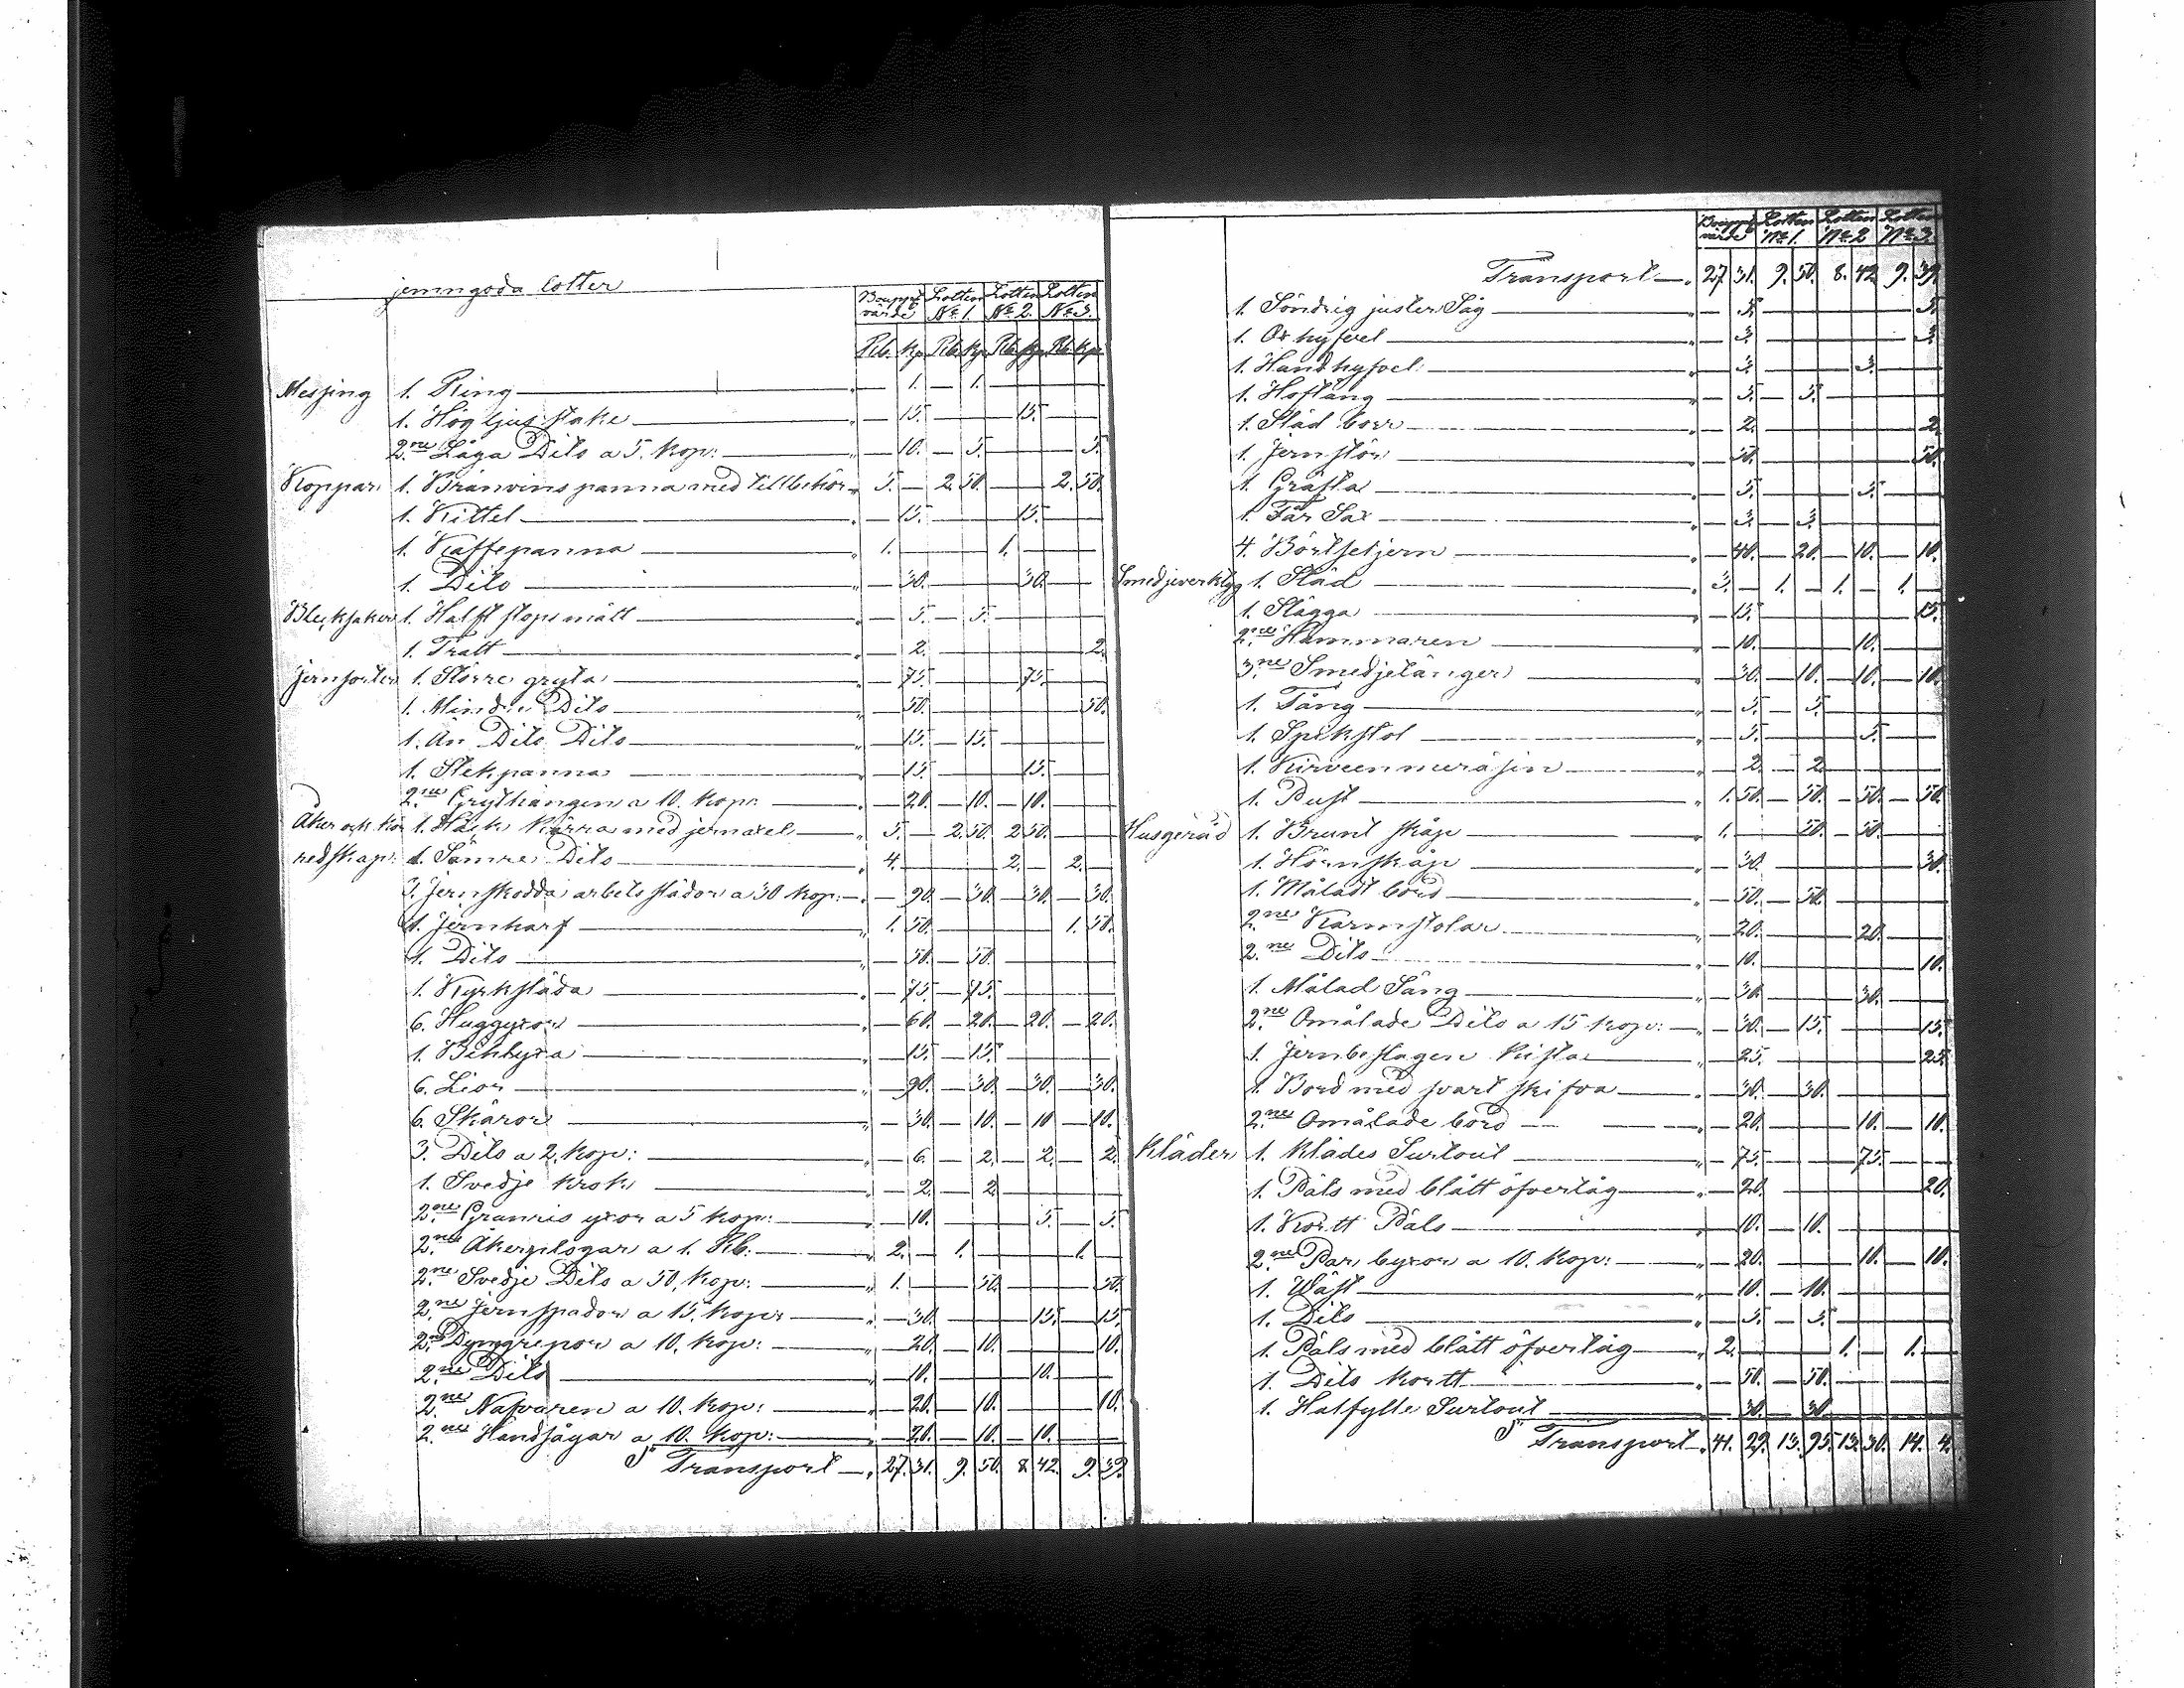 jemngoda lotter
Bouppt värde Lotten No 1. Lotten No 2. Lotten No 3.
Rb. Kp. Rb. Kp. Rb. Kp. Rb. Kp.
Messing 1. Ring — 1. — 1.
1. Hög ljusstake — 15. 15.
2ne Låga Dito a 5. Kop: — 10. — 5. 5.
Koppar 1. Bränvins panna med tillbehör 5. — 2. 50. 2. 50.
1. Kittel — 15. 15.
1. Kaffepanna 1. 1.
1. Dito — 30. 30.
Blecksaker 1. Halft stops mått — 5. — 5.
1. Tratt — 2. 2.
Jernsorter 1. Större gryta — 75. 75.
1. Mindre Dito — 50. 50.
1. Än Dito Dito — 15. — 15.
1. Stekpanna — 15. 15.
2ne Grythängen a 10. Kop: — 20. — 10. — 10.
Åker och kör 1. Häck Kärra med jernaxel 5. — 2. 50. 2. 50.
redskap: 1. Sämre Dito 4. 2. — 2.
3. Jernskodda arbetsslädor a 30 Kop: — 90. — 30. — 30. — 30.
1. Jernharf 1. 50. 1. 50.
1. Dito — 50. — 50.
1. Kyrksläda — 75. — 75.
6. Huggyxor — 60. — 20. — 20. — 20.
1. Bihlyxa — 15. — 15.
6. Lior — 90. — 30. — 30. — 30.
6. Skäror — 30. — 10. — 10 — 10.
3. Dito a 2. Kop: — 6. — 2. — 2. — 2.
1. Svedje krok — 2. — 2.
2ne Granris yxor a 5 Kop: — 10. 5. — 5.
2ne Åkerplogar a 1. Rb. 2. — 1. 1.
2ne Svedje Dito a 50, Kop: 1. — 50. 50.
2ne Jernspador a 15. Kop: — 30. 15. — 15.
2ne Dyngrepor a 10. Kop: — 20. — 10. 10.
2ne Dito — 10. 10.
2ne Nafvaren a 10. Kop: — 20. — 10. 10.
2ne Handsågar a 10. Kop: — 20. — 10. — 10.
Transport 27. 31. 9. 50. 8. 42. 9. 39.
Bouppt värde Lotten No 1. Lotten No 2 Lotten No 3.
Transport 27. 31. 9. 50. 8. 42. 9. 39.
1. Söndrig juster Såg — 5. 5.
1. Ox hyfvel — 3. 3.
1. Handhyfvel — 3. 3.
1. Hoftång — 5. — 5.
1. Städ borr — 2. 2.
1. Jernstör — 50. 50.
1. Gräfta — 5. 5.
1. Får Sax — 3. — 3.
4. Böstsetjern — 40. — 20. — 10. — 10.
Smedjeverktyg 1. Städ 3. — 1. — 1. — 1. —
1. Slägga — 15. 15.
2ne Hammaren — 10. 10.
3ne Smedjetänger — 30. — 10. — 10. — 10.
1. Tång — 5. — 5.
1. Spikstol — 5. 5.
1. Kirveenmeräsin — 2. — 2.
1. Pust 1. 50. — 50. — 50. — 50.
Husgeråd 1. Brunt skåp 1. 50. — 50.
1. Hörnskåp — 30. 30.
1. Måladt bord — 50. — 50.
2ne Karmstolar — 20. 20.
2ne Dito — 10. 10.
1. Målad Säng — 30. 30.
2ne Omålade Dito a 15 Kop: — 30. — 15. 15.
1. Jernbeslagen kista — 25. 25.
1. Bord med svart skifva — 30. — 30.
2ne Omålade bord — 20. 10. — 10.
Kläder 1. Klädes Surtout — 75. 75.
1. Päls med blått öfvertåg — 20. 20.
1. Kortt Päls — 10. — 10.
2ne Par byxor a 10. Kop: — 20. 10. — 10.
1. Wäst — 10. — 10.
1. Dito — 5. — 5.
1. Päls med blått öfvertåg 2. 1. 1.
1. Dito kortt — 50. — 50.
1. Halfylle Surtout — 30. — 30.
Transport 41. 29. 13. 95. 13. 30. 14. 4.